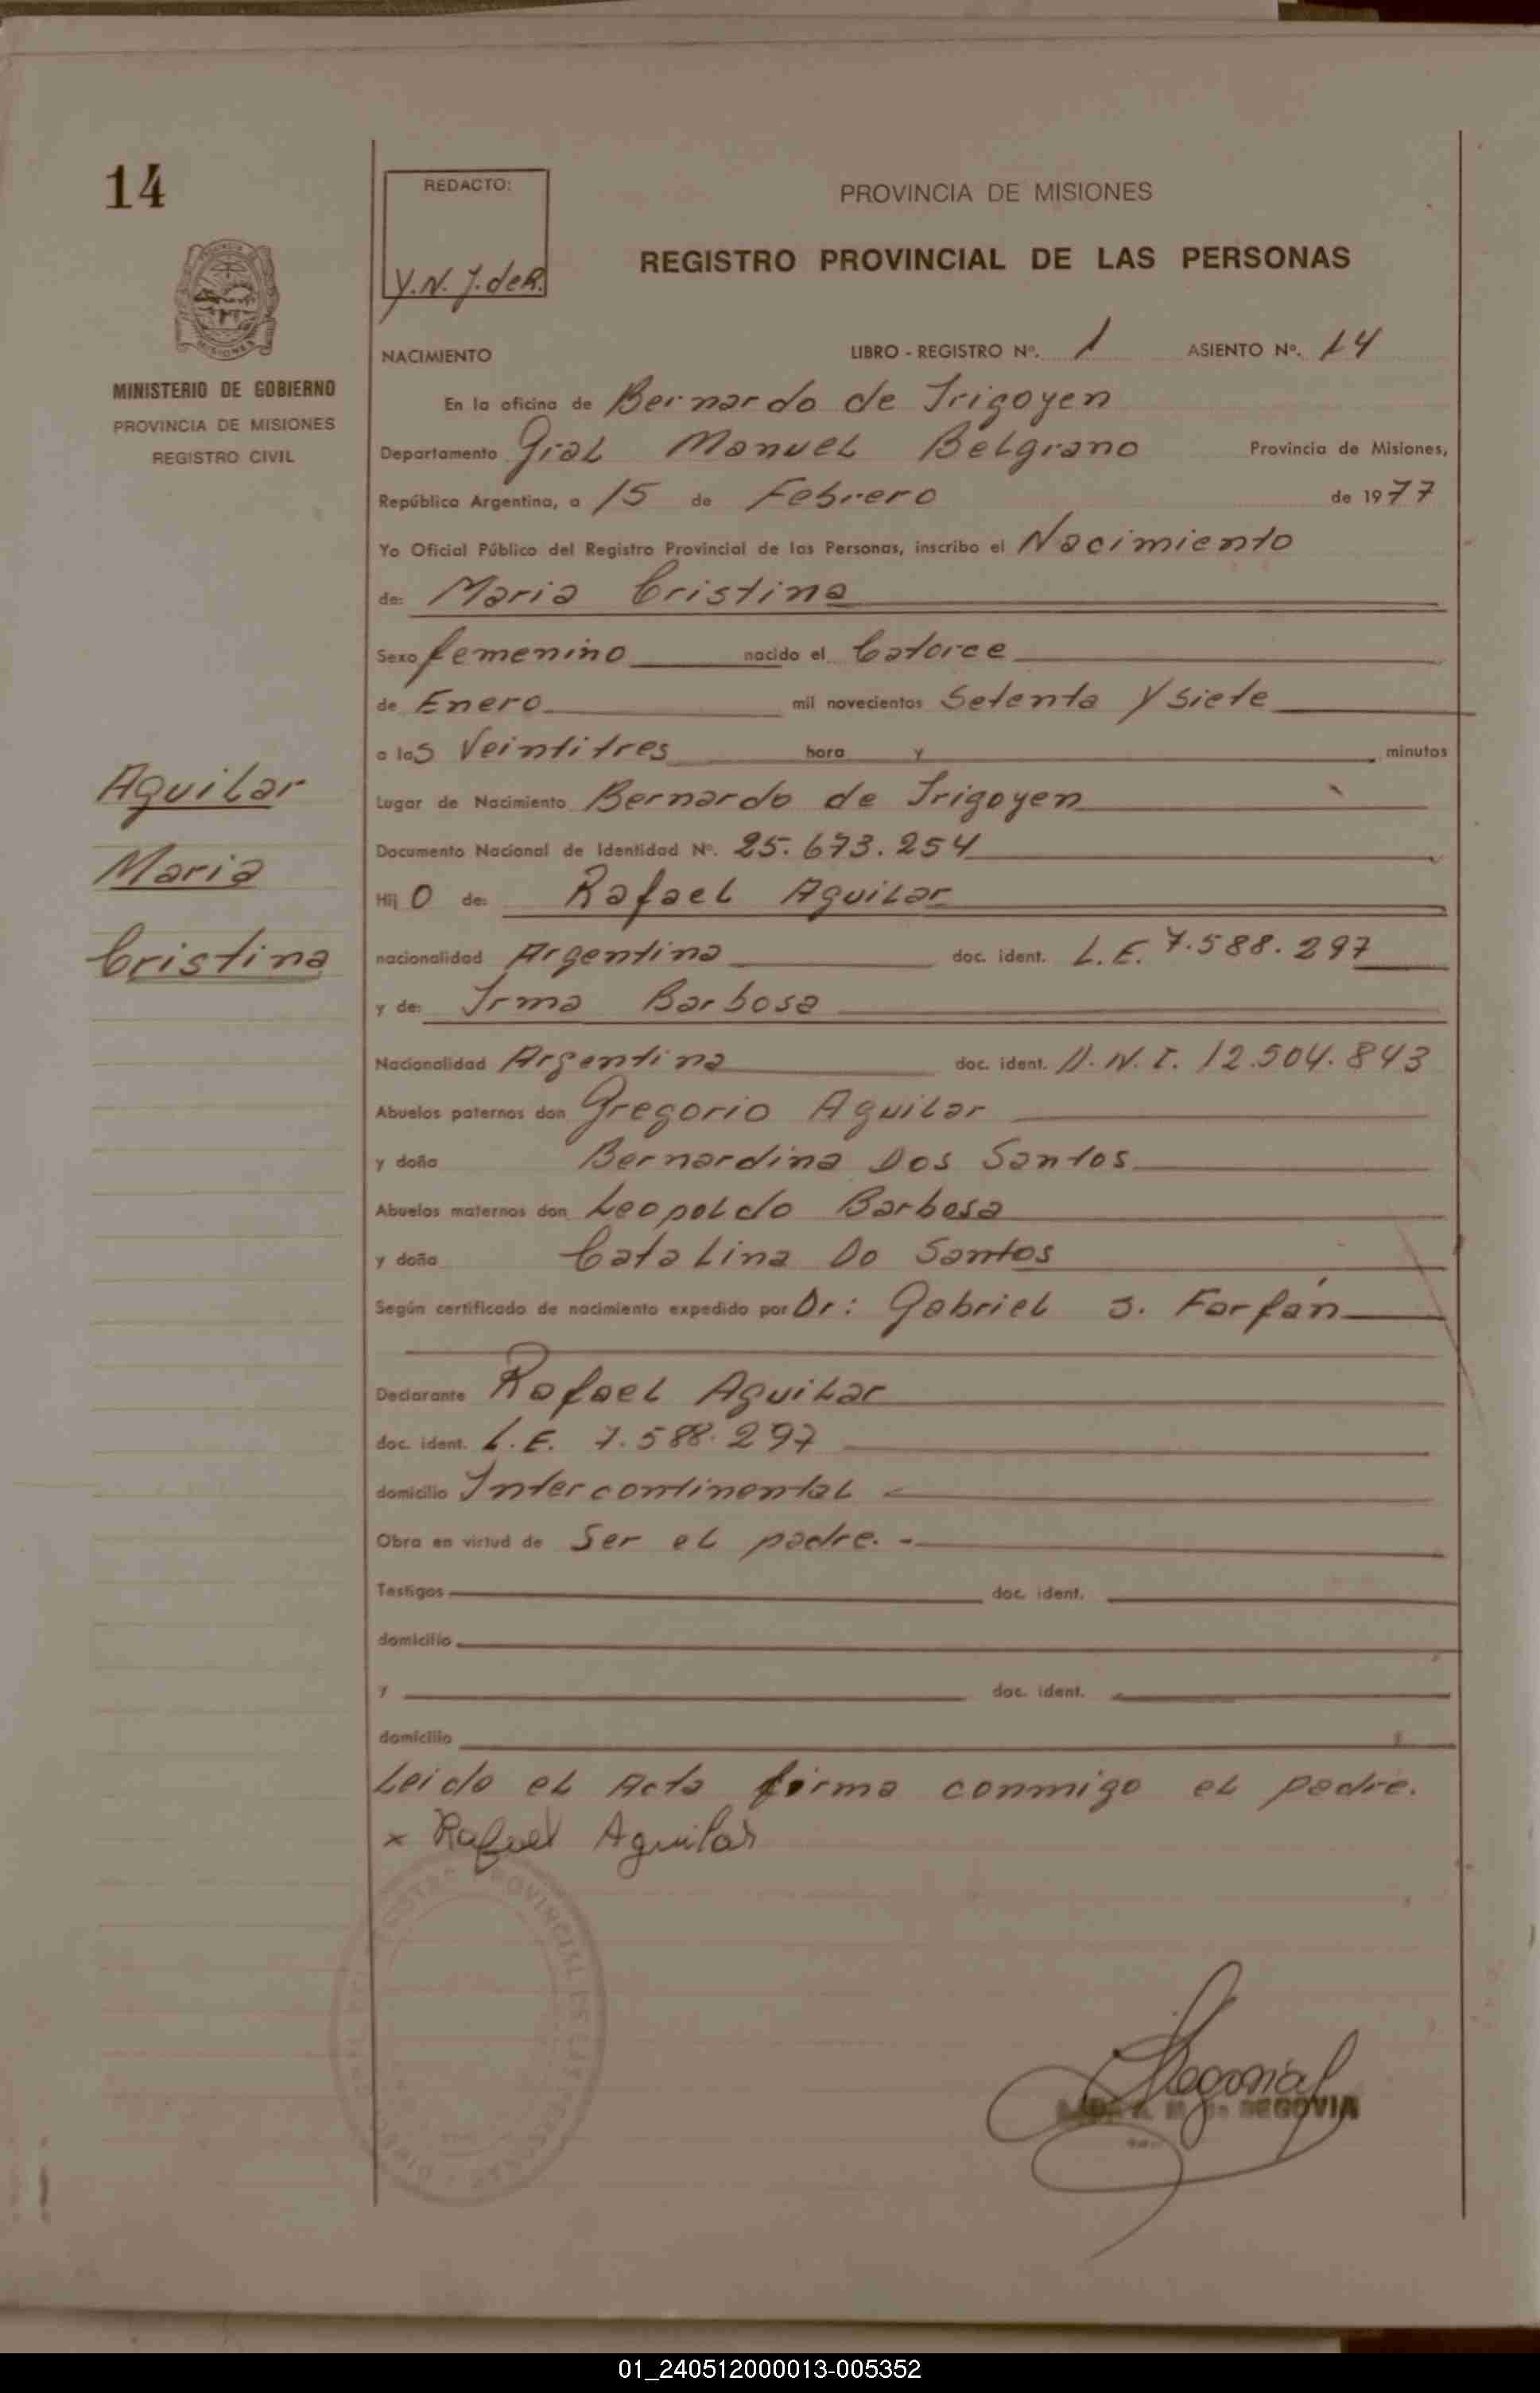 14
REDACTO:
Y.N.J.deR.
PROVINCIA DE MISIONES
REGISTRO PROVINCIAL DE LAS PERSONAS
MINISTERIO DE GOBIERNO
PROVINCIA DE MISIONES
REGISTRO CIVIL
NACIMIENTO LIBRO - REGISTRO Nº. 1 ASIENTO Nº. 14
En la oficina de Bernardo de Irigoyen
Departamento Gral Manuel Belgrano Provincia de Misiones,
República Argentina, a 15 de Febrero de 1977
Yo Oficial Público del Registro Provincial de las Personas, inscribo el Nacimiento
de: Maria Cristina
Sexo femenino nacido el Catorce
de Enero mil novecientos Setenta y Siete
a las Veintitres hora y minutos
Aguilar
Maria
Cristina
Lugar de Nacimiento Bernardo de Irigoyen
Documento Nacional de Identidad Nº. 25.673.254
Hij O de: Rafael Aguilar
nacionalidad Argentina doc. ident. L.E. 7.588.297
y de: Irma Barbosa
Nacionalidad Argentina doc. ident. D.N.I. 12.504.843
Abuelos paternos don Gregorio Aguilar
y doña Bernardina Dos Santos
Abuelos maternos don Leopoldo Barbosa
y doña Catalina Do Santos
Según certificado de nacimiento expedido por Dr: Gabriel S. Farfán
Declarante Rafael Aguilar
doc. ident. L.E. 7.588.297
domicilio Intercontinental
Obra en virtud de Ser el padre.-
Testigos doc. ident.
domicilio
y doc. ident.
domicilio
Leido el Acta firma conmigo el padre.
x Rafael Aguilar
SEGOVIA
01_240512000013-005352